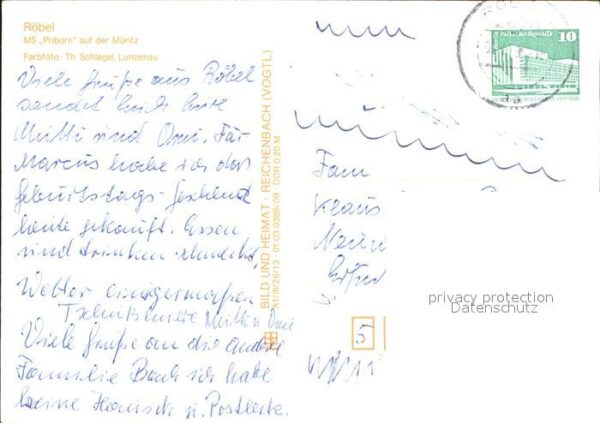 Röbel
MS „Priborn" auf der Müritz
Farbfoto: Th. Schlegel, Lunzenau
Viele Grüße aus Röbel
sendet Euch Eure
Mutti und Omi. Für
Marcus habe ich das
Geburtstags-Geschenk
heute gekauft. Essen
und trinken schmeckt.
Wetter einigermaßen
Tschüß Eure Mutti u Omi
Viele Grüße an die andere
Familie Bach ich habe
keine Hausnr. u. Postleitz.
BILD UND HEIMAT · REICHENBACH (VOGTL)
A1/III/26/13 01 03 0389/09 DDR 0,20 M
10
Palast der Republik
Fam
Klaus
5
privacy protection
Datenschutz